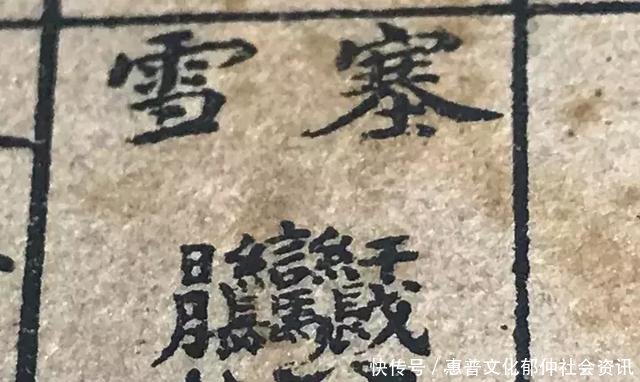 塞雪
快传号／惠普文化郁仲社会资讯